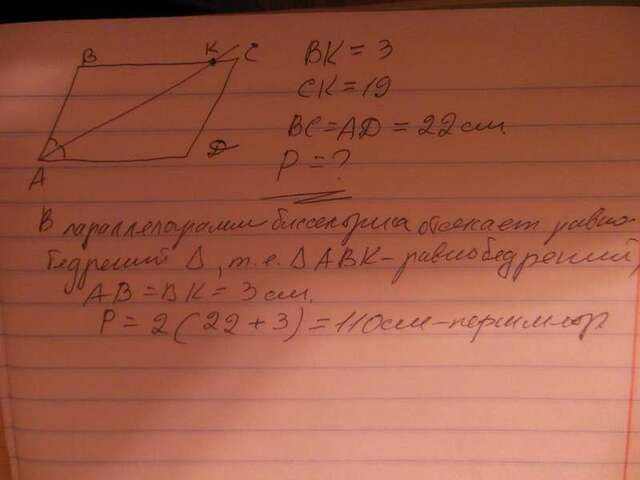 B K C
A D
BK = 3
CK = 19
BC = AD = 22 см.
P = ?
В параллелограмм биссектриса отсекает равно-
бедренный Δ, т.е. ΔABK - равнобедренный,
AB = BK = 3 см.
P = 2(22 + 3) = 110 см - периметр